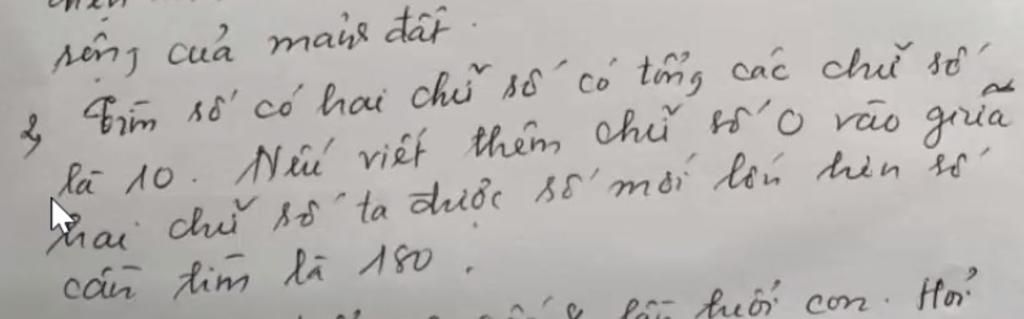 rộng của mảnh đất.
2, Tìm số có hai chữ số có tổng các chữ số
là 10. Nếu viết thêm chữ số 0 vào giữa
hai chữ số ta được số mới lớn hơn số
cần tìm là 180.
lần tuổi con. Hỏi